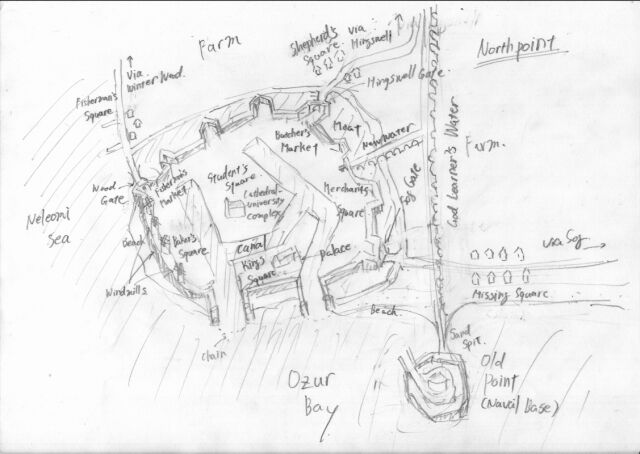 Northpoint
Farm
Shepherd's
Square
Via
Hingswell
Hingswell Gate.
Via
Winter Wood.
Fisherman's
Square
Butcher's
Market
Moat
New Water
God Learner's Water
Farm.
Wood
Gate
Fisherman's
Market
Student's
Square
Cathedral-
University
Complex
Merchant's
Square
Sog Gate
Neleomi
Sea
Beach
Baker's
Square
Canal
King's
Square
Palace
Via Sog
Missing Square
Windmills
Beach
Chain
Sand
Spit.
Ozur
Bay
Old
Point
(Naval Base)